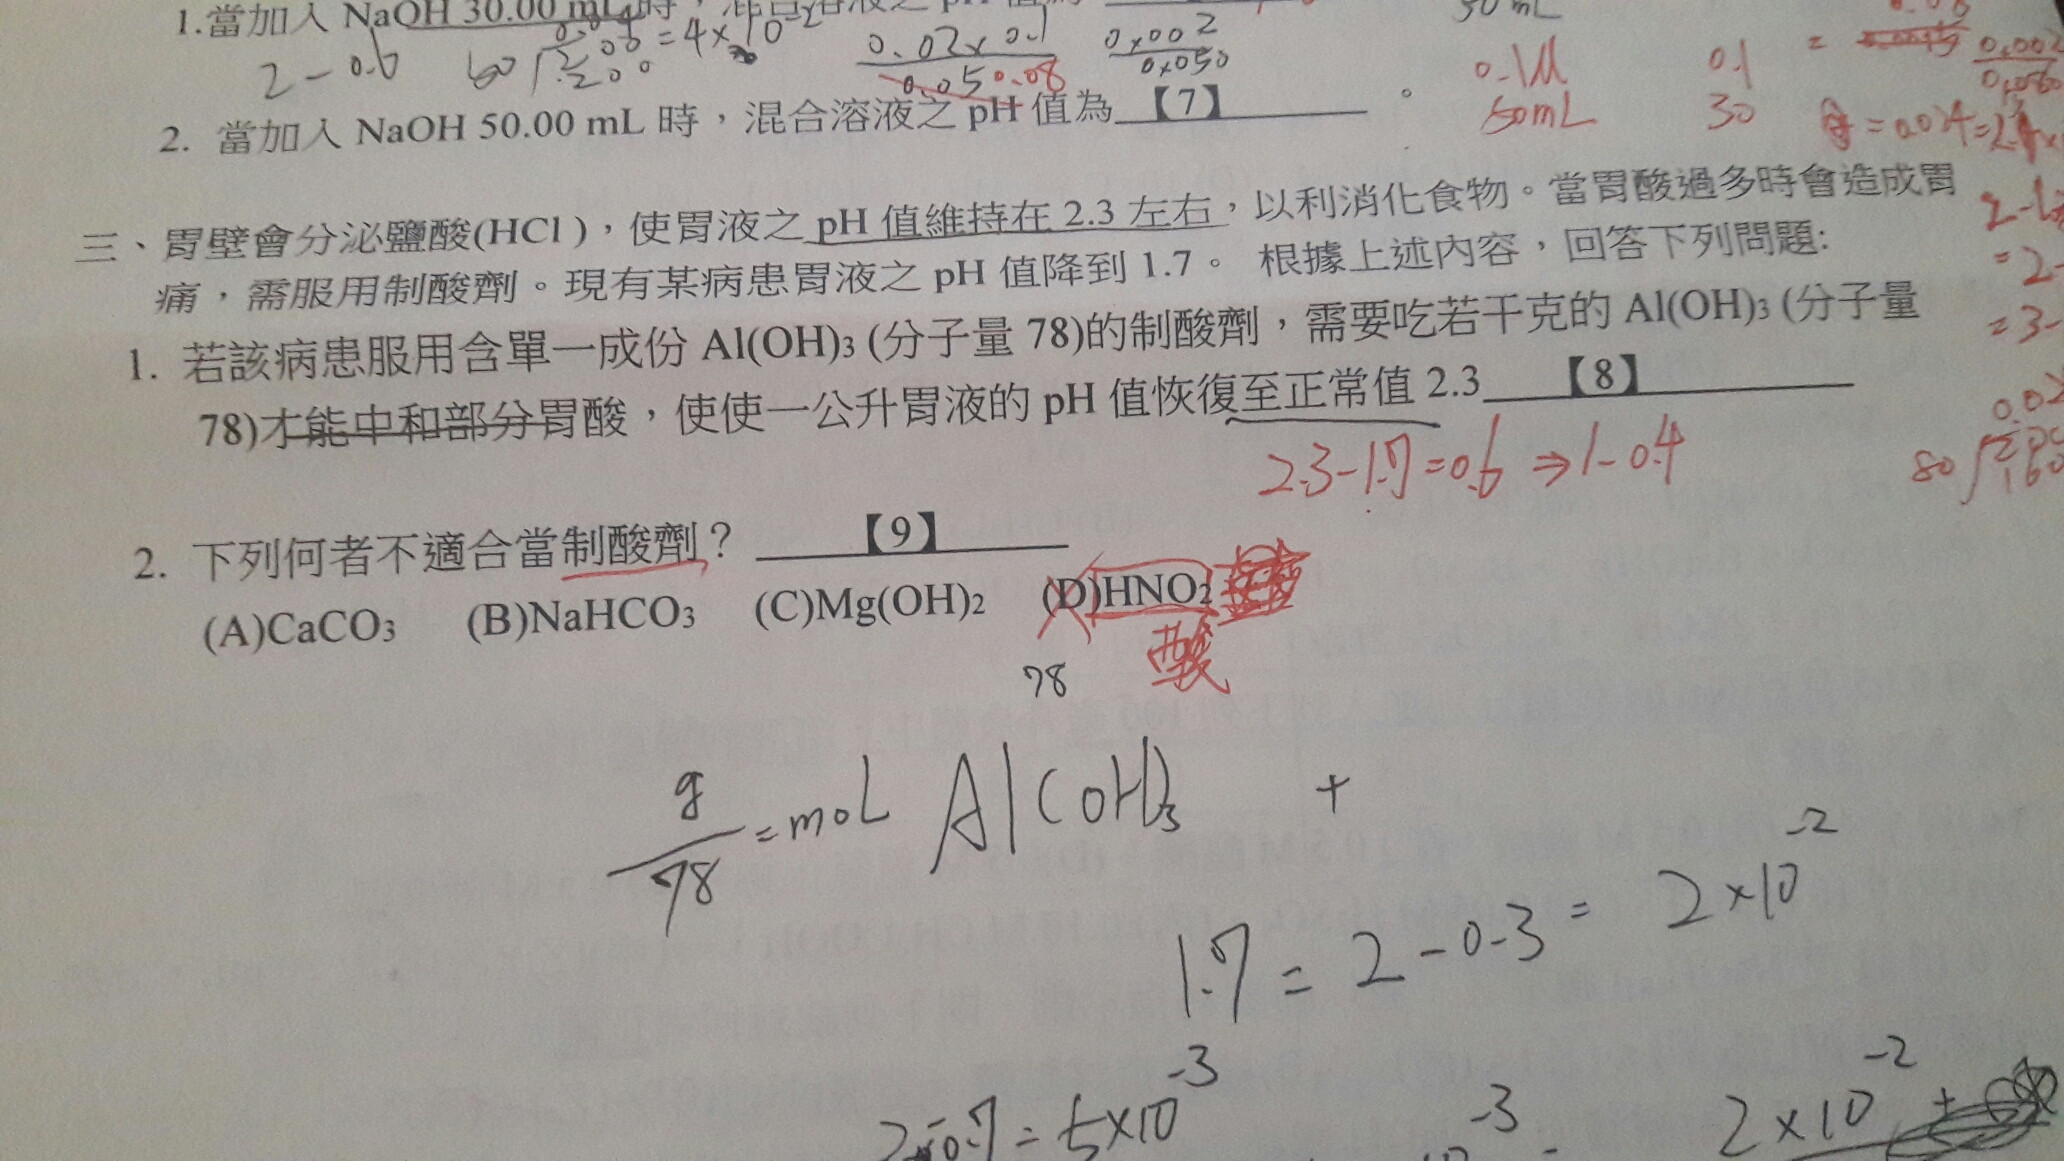 1.當加入 NaOH 30.00 mL 時,混合溶液之 pH 值為
50 mL
2-0.6
= 4×10⁻²
0.02×0.1
0.05 0.08
0.002
0.050
0.1M 0.1
50mL 30
2. 當加入 NaOH 50.00 mL 時,混合溶液之 pH 值為【7】。
三、胃壁會分泌鹽酸(HCl ),使胃液之 pH 值維持在 2.3 左右,以利消化食物。當胃酸過多時會造成胃
痛,需服用制酸劑。現有某病患胃液之 pH 值降到 1.7。 根據上述內容,回答下列問題:
1. 若該病患服用含單一成份 Al(OH)₃ (分子量 78)的制酸劑,需要吃若干克的 Al(OH)₃ (分子量
78)才能中和部分胃酸,使使一公升胃液的 pH 值恢復至正常值 2.3【8】
2.3-1.7=0.6 ⇒ 1-0.4
2. 下列何者不適合當制酸劑?【9】
(A)CaCO₃ (B)NaHCO₃ (C)Mg(OH)₂ (D)HNO₂
酸
78
g/78 = moL Al(OH)₃ +
1.7 = 2-0.3 = 2×10⁻²
= 5×10⁻³
2×10⁻² +